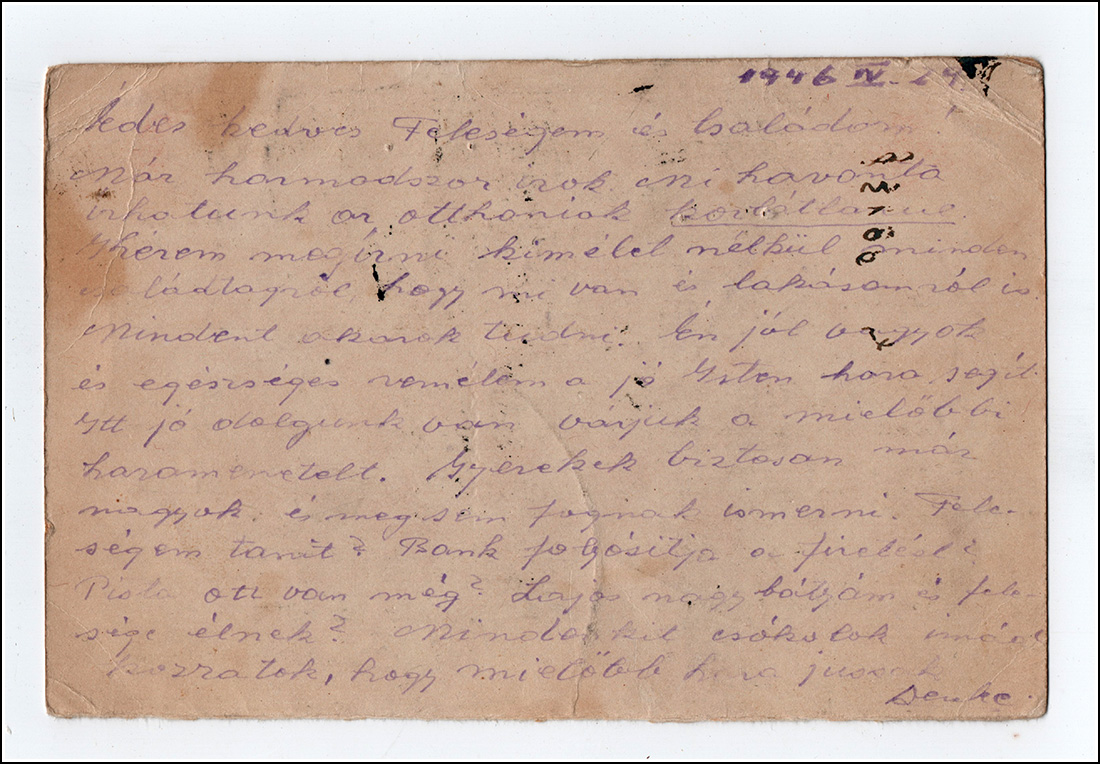 1946 IV. 24
Édes kedves Feleségem és Családom!
Már harmadszor írok. Mi havonta
írhatunk az otthoniak korlátlanul.
Kérem megírni kímélet nélkül minden
családtagról, hogy mi van és lakásomról is.
Mindent akarok tudni. Én jól vagyok
és egészséges remélem a jó Isten haza segít.
Itt jó dolgunk van várjuk a mielőbbi
hazamenetelt. Gyerekek biztosan már
nagyok és meg sem fognak ismerni. Fele-
ségem tanít? Bank folyósítja a fizetést?
Pista ott van még? Lajos nagybátyám és fele-
sége élnek? Mindenkit csókolok imád-
kozzatok, hogy mielőbb haza jussak